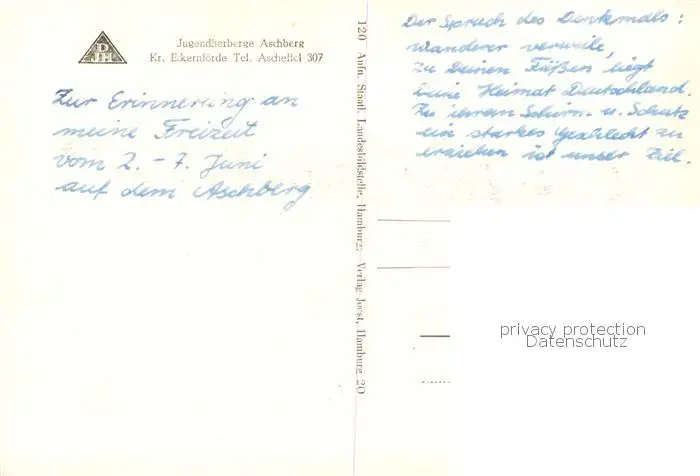 DJH
Jugendherberge Aschberg
Kr. Eckernförde Tel. Ascheffel 307
Zur Erinnerung an
meine Freizeit
vom 2. - 7. Juni
auf dem Aschberg
120 Aufn. Staatl. Landesbildstelle, Hamburg; – Verlag Joost, Hamburg 20
Der Spruch des Denkmals:
Wanderer verweile,
zu Deinen Füßen liegt
Deine Heimat Deutschland.
Zu ihrem Schirm u. Schutz
ein starkes Geschlecht zu
erziehen ist unser Ziel.
privacy protection
Datenschutz